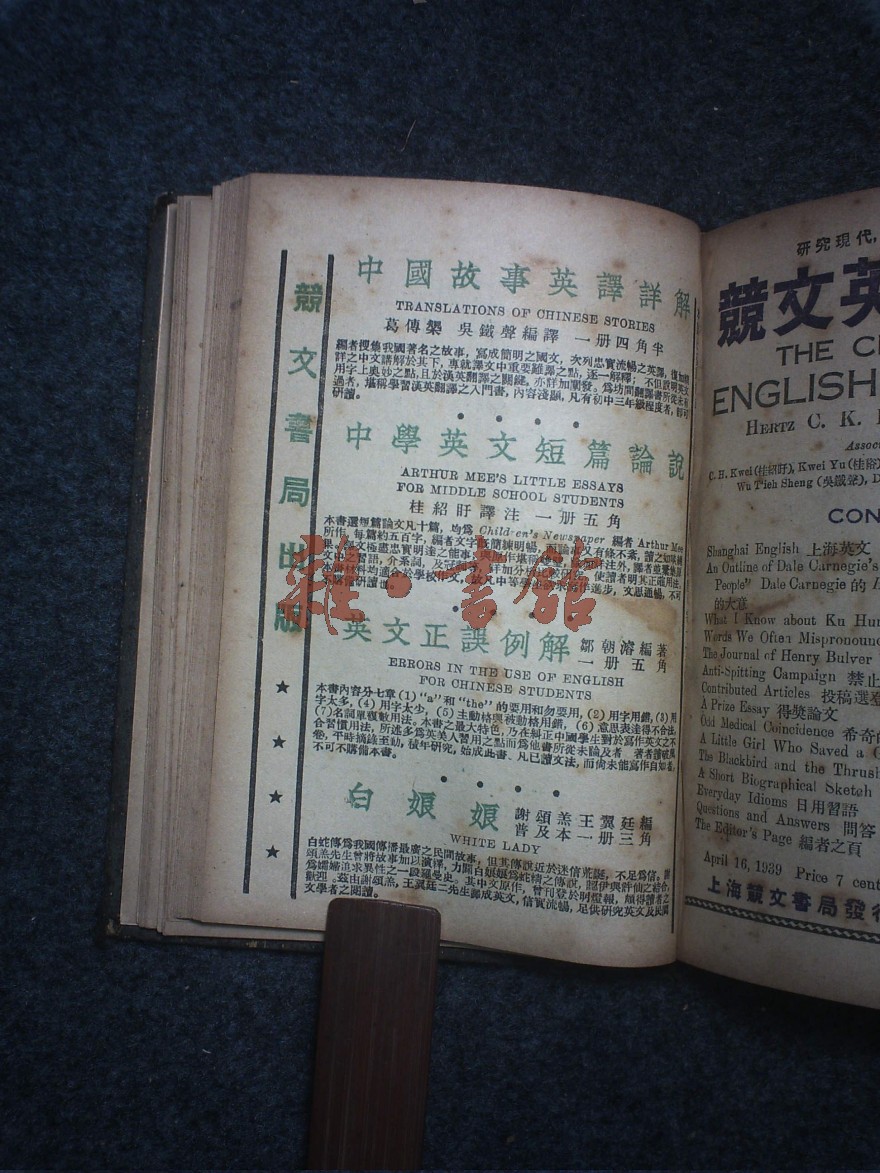 競文書局出版
中國故事英譯詳解
TRANSLATIONS OF CHINESE STORIES
葛傳槼 吳鐵聲編譯 一册四角半
編者搜集我國著名之故事，寫成簡明之國文，次列忠實流暢之英譯，
詳之中文講解於其下，專就譯文中重要難譯之點，逐一解釋；不但說明英文
用字上奧妙之點，且於漢英翻譯之關鍵，亦詳加闡發。爲坊間翻譯書所從未
過者，堪稱學習漢英翻譯之入門書，內容淺顯，凡有初中三年級程度者，都可
研讀。
中學英文短篇論說
ARTHUR MEE'S LITTLE ESSAYS
FOR MIDDLE SCHOOL STUDENTS
桂紹盱譯注 一册五角
本書選短篇論文凡十篇，均爲 Children's Newspaper 編者 Arthur Mee
所作，每篇約五百字，
英文正誤例解 鄒朝濬編著
一册五角
ERRORS IN THE USE OF ENGLISH
FOR CHINESE STUDENTS
本書內容分七章 (1) "a" 和 "the" 的要用和勿要用，(2) 用字用錯，(3) 用
字太多，(4) 用字太少，(5) 主動格與被動格用錯，(6) 意思表達得不合法，
(7) 名詞單複數用法。本書之最大特色，乃在糾正中國學生對於寫作英文之不
合習慣用法，所述多爲英美人習用之點而爲他書所從未論及者
卷，平時摘錄至勤，積年研究，始成此書、凡已讀文法，而尙未能寫作自如者，
不可不購備本書。
白娘娘 謝頌羔王翼廷編
普及本一册三角
WHITE LADY
白蛇傳爲我國傳播最廣之民間故事，但其傳說近於迷信荒誕，不足爲信，謝
頌羔先生曾將故事加以演繹，力闢白娘娘爲蛇精之傳說，
爲孀婦追求異性之一段羅曼史。其中文原作，曾刊登於明燈報，頗得讀者之
歡迎。茲由謝頌羔，王翼廷二先生譯成英文，信實流暢，足供研究英文及民間
文學者之閱讀。
研究現代，
競文英
THE CH
ENGLISH
HERTZ C. K.
Assoc
C. H. Kwei (桂紹盱), Kwei Yu (桂裕)
Wu Tieh Sheng (吳鐵聲), D
CON
Shanghai English 上海英文
An Outline of Dale Carnegie's
People" Dale Carnegie 的
的大意
What I Know about Ku Hun
Words We Often Mispronounce
The Journal of Henry Bulver
Anti-Spitting Campaign 禁止
Contributed Articles 投稿選登
A Prize Essay 得獎論文
Odd Medical Coincidence 希奇的
A Little Girl Who Saved a
The Blackbird and the Thrush
A Short Biographical Sketch
Everyday Idioms 日用習語
Questions and Answers 問答
The Editor's Page 編者之頁
April 16, 1939 Price 7 cent
上海競文書局發行
雜·書館